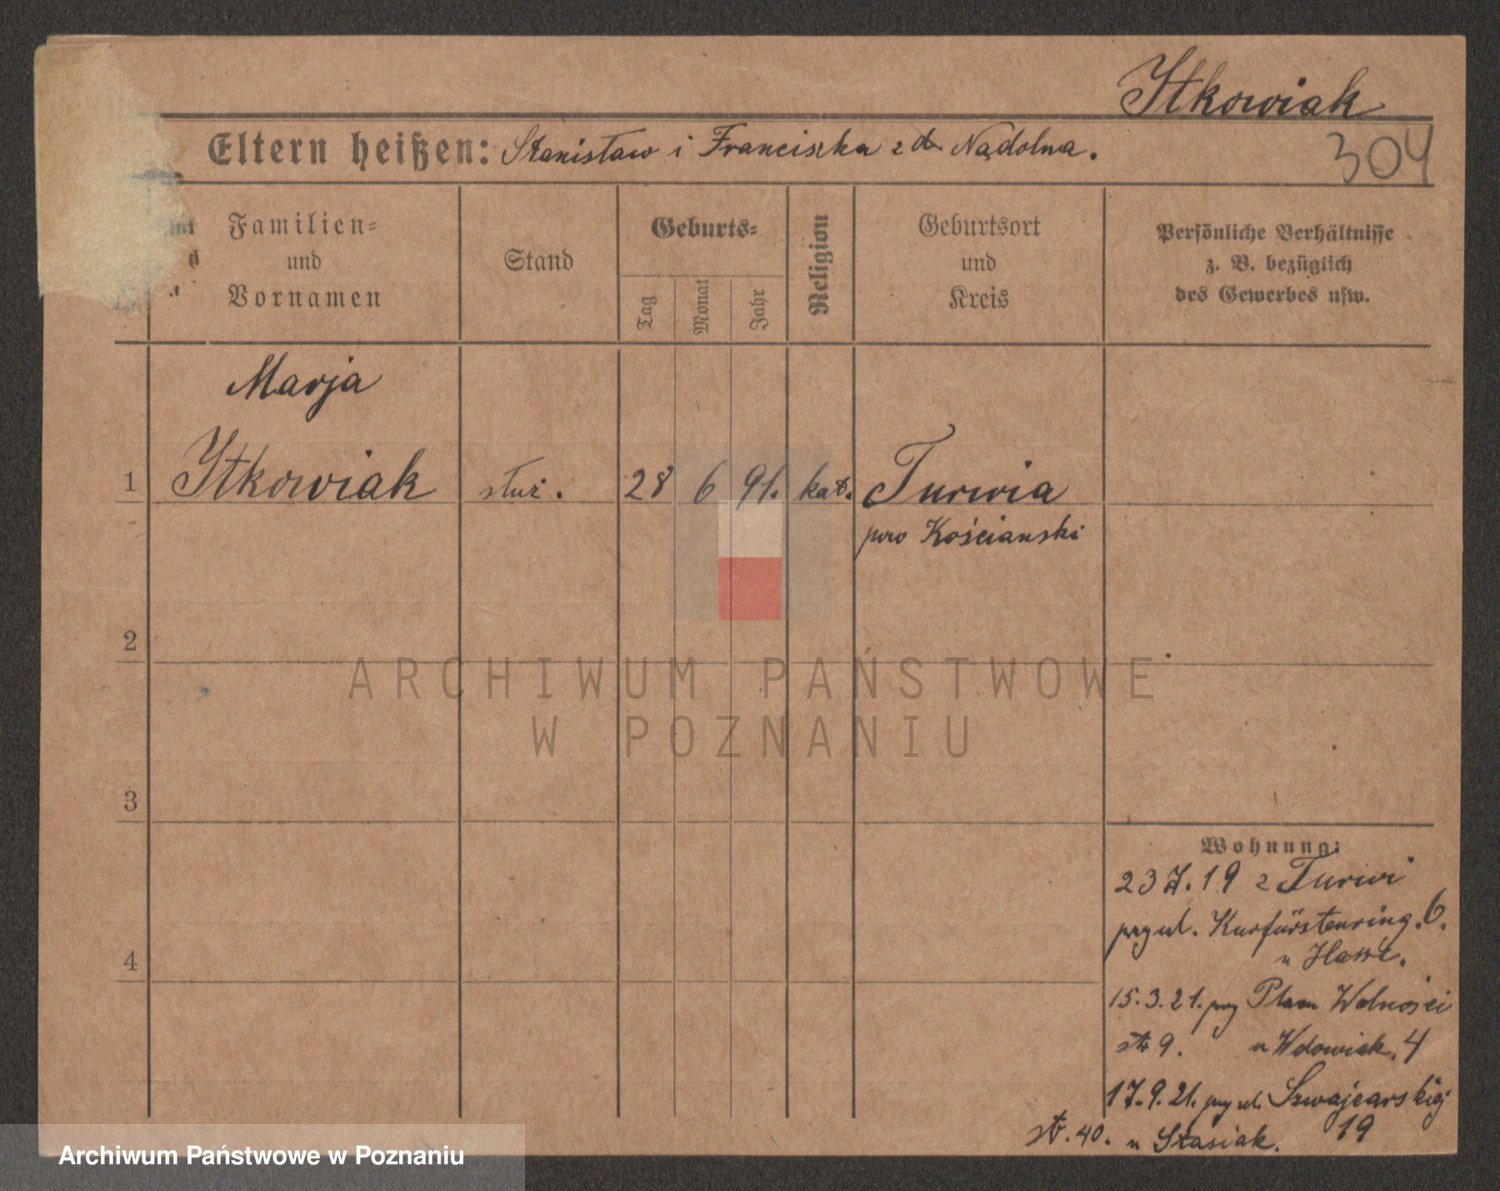 Itkowiak
304
Eltern heißen: Stanisław i Franciszka z d. Nadolna.
Familien-
und
Vornamen
Stand
Geburts-
Tag
Monat
Jahr
Religion
Geburtsort
und
Kreis
Persönliche Verhältnisse
z. B. bezüglich
des Gewerbes usw.
Marja
1 Itkowiak służ. 28 6 91. kat. Turwia
pow Kościanski
2
3
4
Wohnung:
23 7. 19 z Turwi
przy ul. Kurfürstenring. 6.
u
15. 3. 21. przy Placu Wolności
str 9. u Wdowiak. 4
17. 9. 21. przy ul. Szwajcarskiej
19
str. 40. u Stasiak.
ARCHIWUM PAŃSTWOWE
W POZNANIU
Archiwum Państwowe w Poznaniu